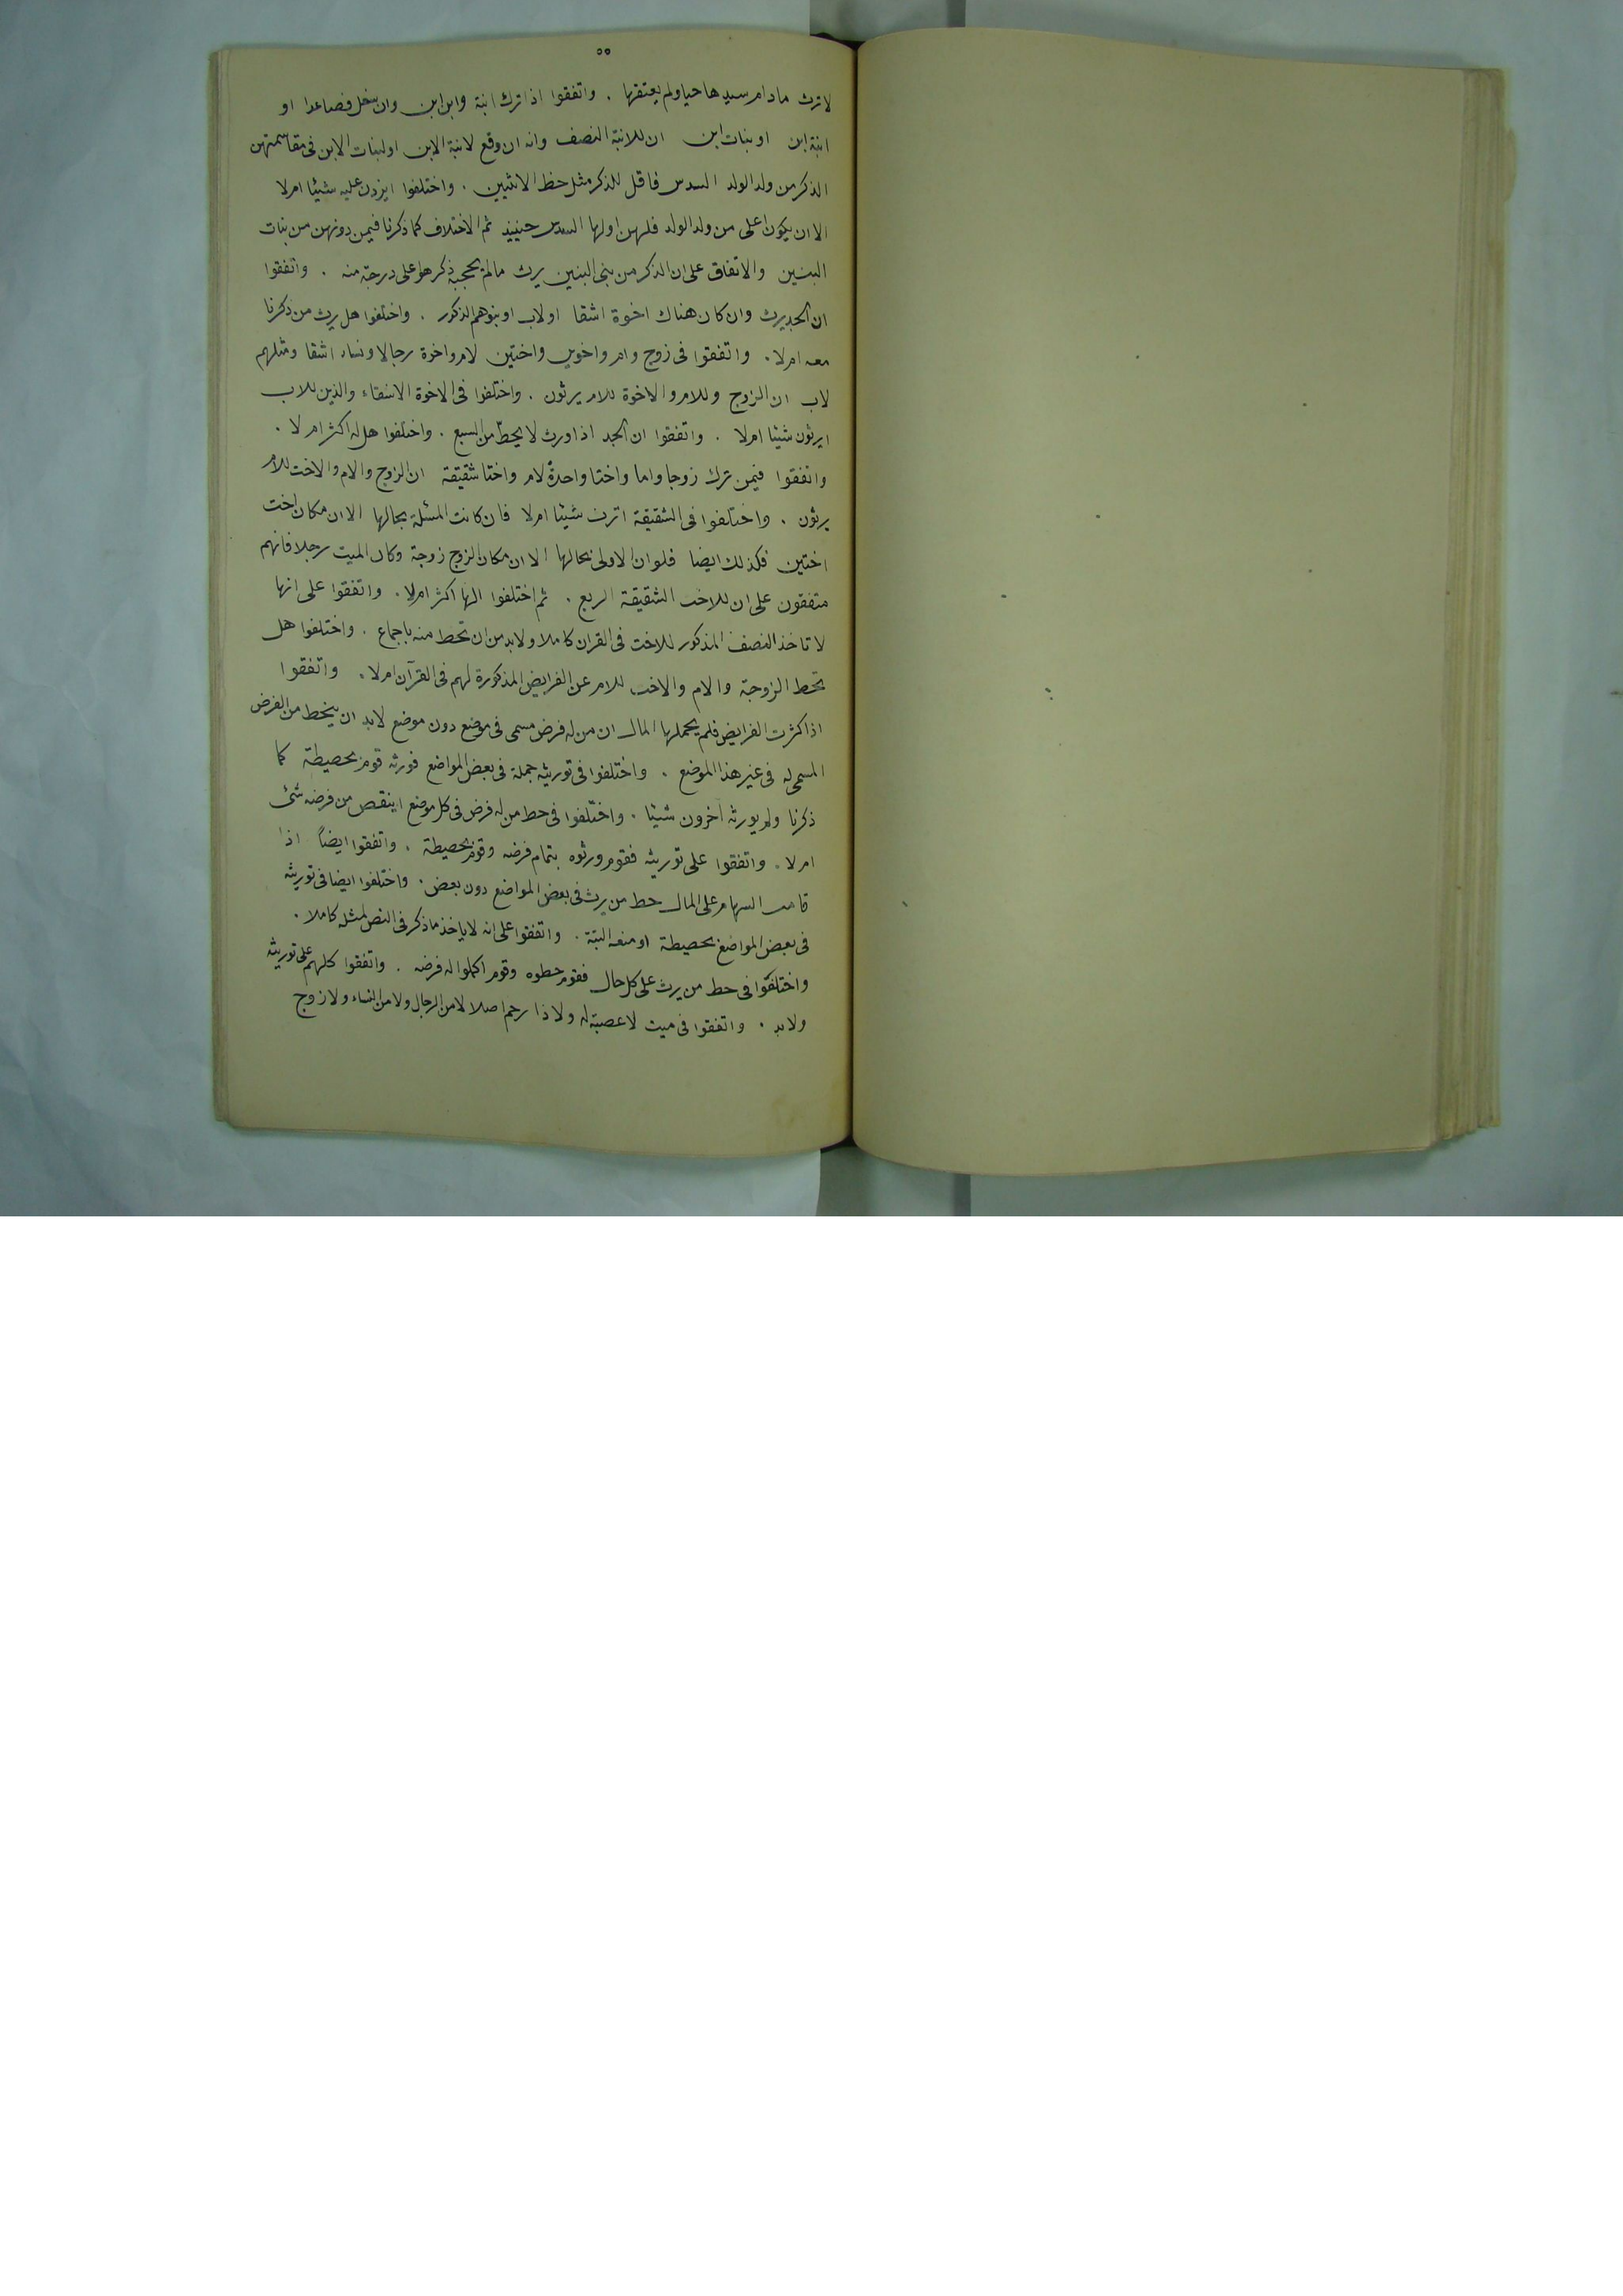 ٥٥
لا ترث مادام سيدها حيا ولم يعتقها . واتفقوا اذا ترك ابنة وابن ابن وان سفل فصاعدا او
ابنة ابن او بنات ابن ان للابنة النصف وانه ان وقع لابنة الابن او لبنات الابن فى مقاسمتهن
الذكر من ولد الولد السدس فاقل للذكر مثل حظ الانثيين . واختلفوا ايزدن عليه شيئا ام لا
الا ان يكون اعلى من ولد الولد فلهن اولها السدس حينئذ ثم الاختلاف كما ذكرنا فيمن دونهن من بنات
البنين والاتفاق على ان الذكر من بنى البنين يرث مالم يحجبه ذكر هو اعلى درجة منه . واتفقوا
ان الجد يرث وان كان هناك اخوة اشقا او لاب او بنوهم الذكور . واختلفوا هل يرث من ذكرنا
معه ام لا . واتفقوا فى زوج وام واخوين واختين لام واخوة رجالا ونساء اشقا ومثلهم
لاب ان الزوج وللام والاخوة للام يرثون . واختلفوا فى الاخوة الاشقاء والذين للاب
ايرثون شيئا ام لا . واتفقوا ان الجد اذا ورث لا يحط من السبع . واختلفوا هل له اكثر ام لا .
واتفقوا فيمن ترك زوجا واما واختا واحدة لام واختا شقيقة ان الزوج والام والاخت للام
يرثون . واختلفوا فى الشقيقة اترث شيئا ام لا فان كانت المسئلة بحالها الا ان مكان اخت
اختين فكذلك ايضا فلو ان الاولى بحالها الا ان مكان الزوج زوجة وكان الميت رجلا فانهم
متفقون على ان للاخت الشقيقة الربع . ثم اختلفوا الها اكثر ام لا . واتفقوا على انها
لا تاخذ النصف المذكور للاخت فى القران كاملا ولابد من ان تحط منه باجماع . واختلفوا هل
تحط الزوجة والام والاخت للام عن الفرايض المذكورة لهم فى القرآن ام لا . واتفقوا
اذا كثرت الفرايض فلم يحملها المال ان من له فرض مسمى فى موضع دون موضع لابد ان ينحط من الفرض
المسمى له فى غير هذا الموضع . واختلفوا فى توريثه جملة فى بعض المواضع فورثه قوم بحصيطة كما
ذكرنا ولم يورثه آخرون شيئا . واختلفوا فى حط من له فرض فى كل موضع اينقص من فرضه شئ
ام لا . واتفقوا على توريثه فقوم ورثوه بتمام فرضه وقوم بحصيطة . واتفقوا ايضاً اذا
قامت السهام على المال حط من يرث فى بعض المواضع دون بعض . واختلفوا ايضا فى توريثه
فى بعض المواضع بحصيطة او منعه البتة . واتفقوا على انه لا ياخذ ما ذكر فى النص لمثله كاملا .
واختلفوا فى حط من يرث على كل حال فقوم حطوه وقوم اكملوا له فرضه . واتفقوا كلهم على توريثه
ولابد . واتفقوا فى ميت لا عصبة له ولا ذا رحم اصلا لا من الرجال ولا من النساء ولا زوج